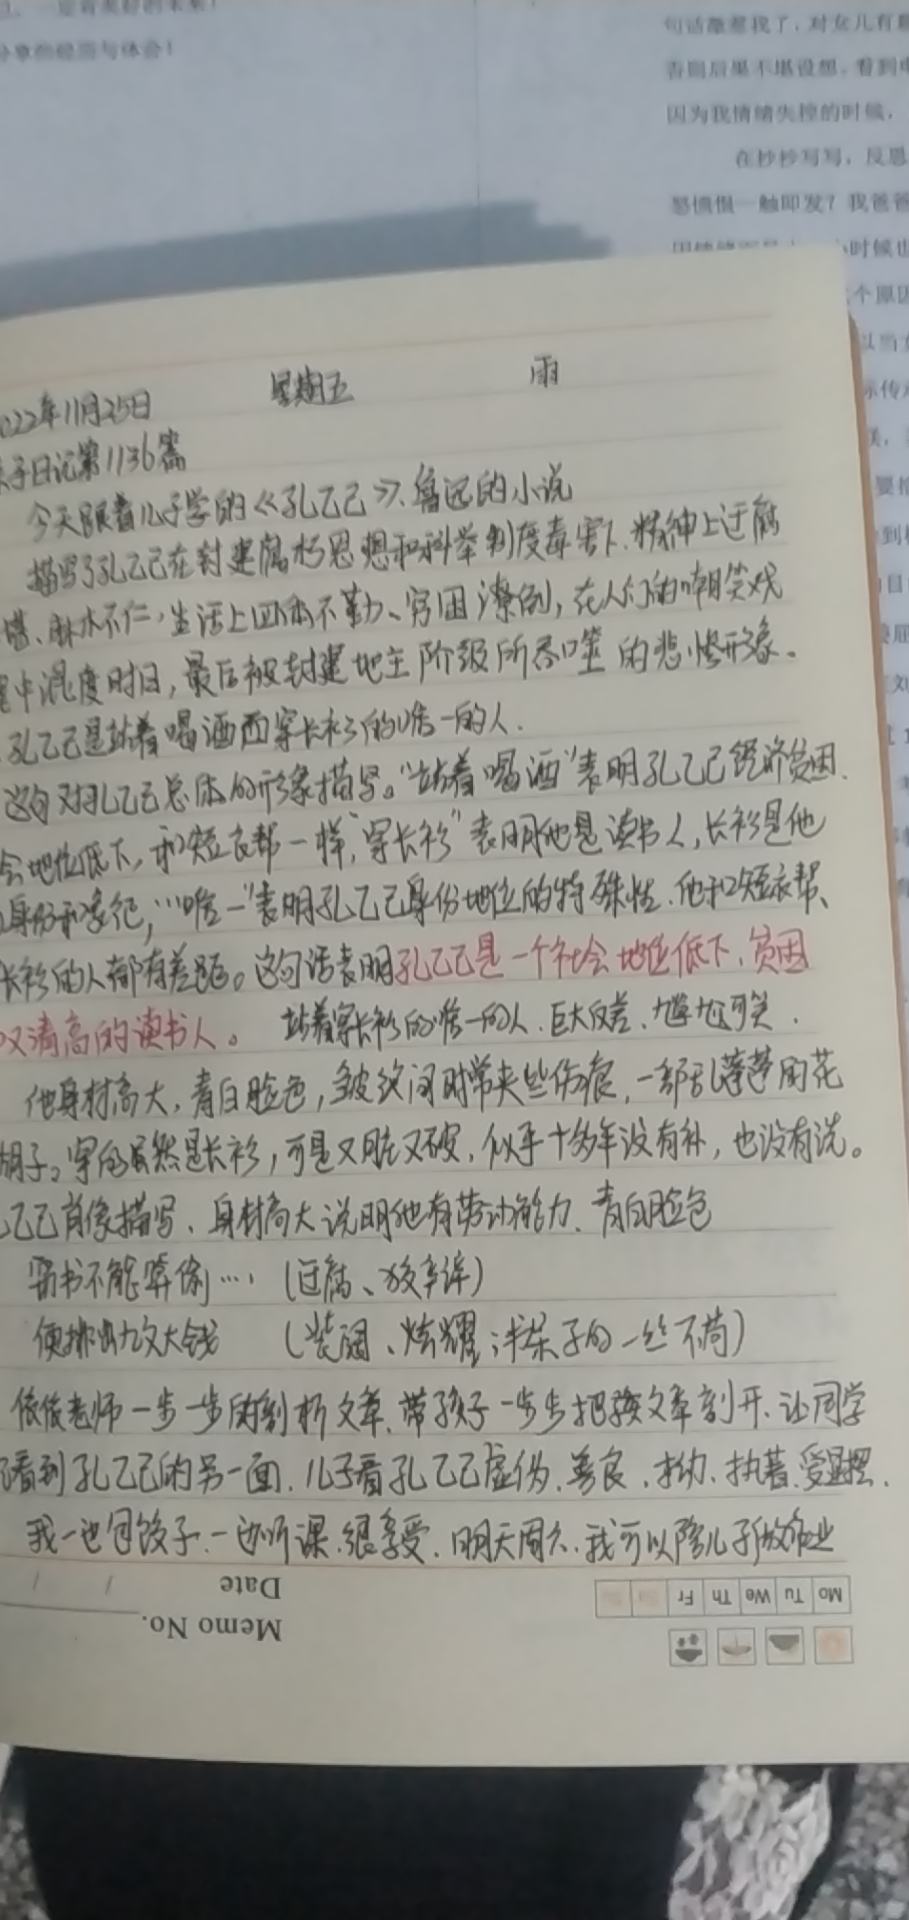 一定有美好的未来!
分享的经历与体会!
句话激惹我了,对女儿有
否则后果不堪设想,看到
因为我情绪失控的时候,
在抄抄写写,反思
怒愤恨一触即发?我爸爸
小时候也
个原因
以当
2022年11月25日 星期五 雨
亲子日记第1136篇
今天跟着儿子学的《孔乙己》、鲁迅的小说
描写了孔乙己在封建腐朽思想和科举制度毒害下、精神上迂腐
麻木不仁,生活上四体不勤、穷困潦倒,在人们的嘲笑戏
中混度时日,最后被封建地主阶级所吞噬的悲惨形象。
孔乙己是站着喝酒而穿长衫的唯一的人.
这句对孔乙己总体的形象描写。“站着喝酒”表明孔乙己经济贫困、
会地位低下,和短衣帮一样,“穿长衫”表明他是读书人,长衫是他
身份和象征,“唯一”表明孔乙己身份地位的特殊性.他和短衣帮、
长衫的人都有差距。这句话表明孔乙己是一个社会地位低下、贫困
又清高的读书人。 站着穿长衫的唯一的人、巨大反差、尴尬可笑.
他身材高大,青白脸色,皱纹间时常夹些伤痕,一部乱蓬蓬的花
胡子。穿的虽然是长衫,可是又脏又破,似乎十多年没有补,也没有洗。
乙己肖像描写、身材高大说明他有劳动能力、青白脸色
窃书不能算偷… (迂腐、好争辩)
便排出九文大钱 (装阔、炫耀;
依依老师一步一步的剖析文章、带孩子一步步把文章剖开、让同学
看到孔乙己的另一面、儿子看孔乙己虚伪、善良、执着、
我一边包饺子一边听课、很享受、明天周六、我可以陪儿子做作业
Date
Memo No.
Mo Tu We Th Fr Sa Su